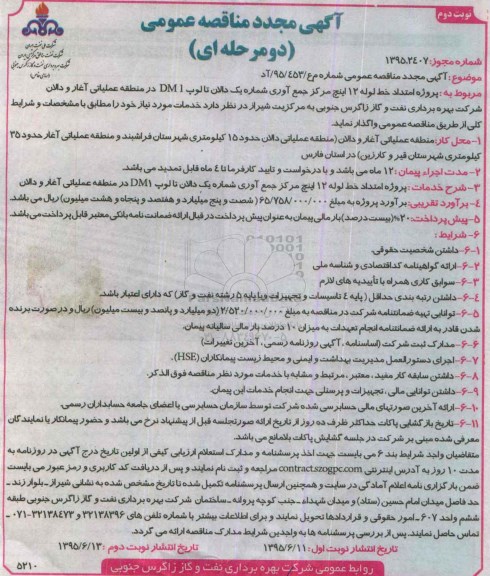 نوبت دوم
آگهی مجدد مناقصه عمومی
(دومرحله ای)
شماره مجوز: ۱۳۹۵.۲۴۰۷
موضوع: آگهی مجدد مناقصه عمومی شماره مع/۹۵/۴۵۳/آد
مربوط به: پروژه امتداد خط لوله ۱۲ اینچ مرکز جمع آوری شماره یک دالان تا لوپ DM۱ در منطقه عملیاتی آغار و دالان
شرکت بهره برداری نفت و گاز زاگرس جنوبی به مرکزیت شیراز در نظر دارد خدمات مورد نیاز خود را مطابق با مشخصات و شرایط
کلی از طریق مناقصه عمومی واگذار نماید.
۱- محل کار: منطقه عملیاتی آغار و دالان (منطقه عملیاتی دالان حدود ۱۵ کیلومتری شهرستان فراشبند و منطقه عملیاتی آغار حدود ۳۵
کیلومتری شهرستان قیر و کارزین) در استان فارس
۲- مدت اجراء پیمان: ۱۲ ماه می باشد و با درخواست و تایید کارفرما تا ۴ ماه قابل تمدید می باشد.
۳- شرح خدمات: پروژه امتداد خط لوله ۱۲ اینچ مرکز جمع آوری شماره یک دالان تا لوپ DM1 در منطقه عملیاتی آغار و دالان
۴- برآورد تقریبی: برآورد پروژه به مبلغ ۶۵/۷۵۸/۰۰۰/۰۰۰ (شصت و پنج میلیارد و هفتصد و پنجاه و هشت میلیون) ریال می باشد.
۵- پیش پرداخت: ۲۰% (بیست درصد) بار مالی پیمان به عنوان پیش پرداخت در قبال ارائه ضمانت نامه بانکی معتبر قابل پرداخت می باشد.
۶- شرایط:
۱-۶- داشتن شخصیت حقوقی.
۲-۶- ارائه گواهینامه کد اقتصادی و شناسه ملی
۳-۶- سوابق کاری همراه با تأییدیه های لازم
۴-۶- داشتن رتبه بندی حداقل (پایه ۴ تاسیسات و تجهیزات و یا پایه ۵ رشته نفت و گاز) که دارای اعتبار باشد.
۵-۶- توانایی تهیه ضمانتنامه شرکت در مناقصه به مبلغ ۲/۵۲۰/۰۰۰/۰۰۰ (دو میلیارد و پانصد و بیست میلیون) ریال و در صورت برنده
شدن قادر به ارائه ضمانتنامه انجام تعهدات به میزان ۱۰ درصد بار مالی سالیانه پیمان.
۶-۶- مدارک ثبت شرکت (اساسنامه، آگهی روزنامه رسمی، آخرین تغییرات)
۷-۶- اجرای دستورالعمل مدیریت بهداشت و ایمنی و محیط زیست پیمانکاران (HSE).
۸-۶- داشتن سابقه کار مفید، معتبر، مرتبط و مشابه با خدمات مورد نظر مناقصه فوق الذکر.
۹-۶- داشتن توانایی مالی، تجهیزات و پرسنلی جهت انجام خدمات این پیمان.
۱۰-۶- ارائه آخرین صورتهای مالی حسابرسی شده شرکت توسط سازمان حسابرسی یا اعضای جامعه حسابداران رسمی.
۱۱-۶- تاریخ بازگشایی پاکات حداکثر ظرف ده روز از تاریخ ارائه صورتجلسه قبل از پیشنهاد نرخ می باشد و حضور پیمانکار یا نمایندگان
معرفی شده مبنی بر شرکت در جلسه گشایش پاکات بلامانع می باشد.
متقاضیان واجد شرایط بند ۶ می بایست جهت اخذ پرسشنامه و مدارک استعلام ارزیابی کیفی از اولین تاریخ درج آگهی در روزنامه به
مدت ۱۰ روز به آدرس اینترنتی contract.szogpc.com مراجعه و ثبت نام نمایند و پس از دریافت کد کاربری و رمز عبور می بایست
ضمن بارگزاری نامه اعلام آمادگی در سایت و همچنین ارسال پرسشنامه تکمیل شده تا تاریخ مشخص شده به نشانی شیراز ـ بلوار زند ـ
حد فاصل میدان امام حسین (ستاد) و میدان شهداء ـ جنب کوچه پروانه ـ ساختمان شرکت بهره برداری نفت و گاز زاگرس جنوبی طبقه
ششم واحد ۶۰۷ ـ امور حقوقی و قراردادها تحویل نمایند و برای اطلاعات بیشتر با شماره تلفن های ۳۲۱۳۸۳۹۶ و ۳۲۱۳۸۴۷۳-۰۷۱
تماس حاصل نمایند. پس از بررسی پرسشنامه ها به واجدین شرایط مدارک مناقصه ارائه می گردد.
تاریخ انتشار نوبت اول: ۱۳۹۵/۶/۱۱ تاریخ انتشار نوبت دوم: ۱۳۹۵/۶/۱۳
روابط عمومی شرکت بهره برداری نفت و گاز زاگرس جنوبی
۵۲۱۰